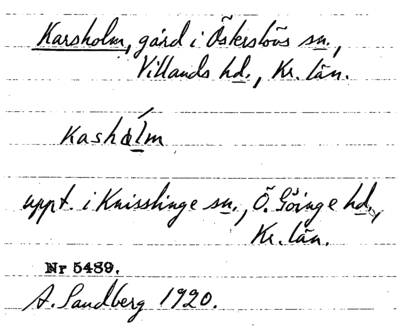 Karsholm, gård i Österslövs sn.,
Villands hd., Kr. län.
Kashólm
uppt. i Knisslinge sn., Ö. Göinge hd.,
Kr. län.
Nr 5489.
A. Sandberg 1920.